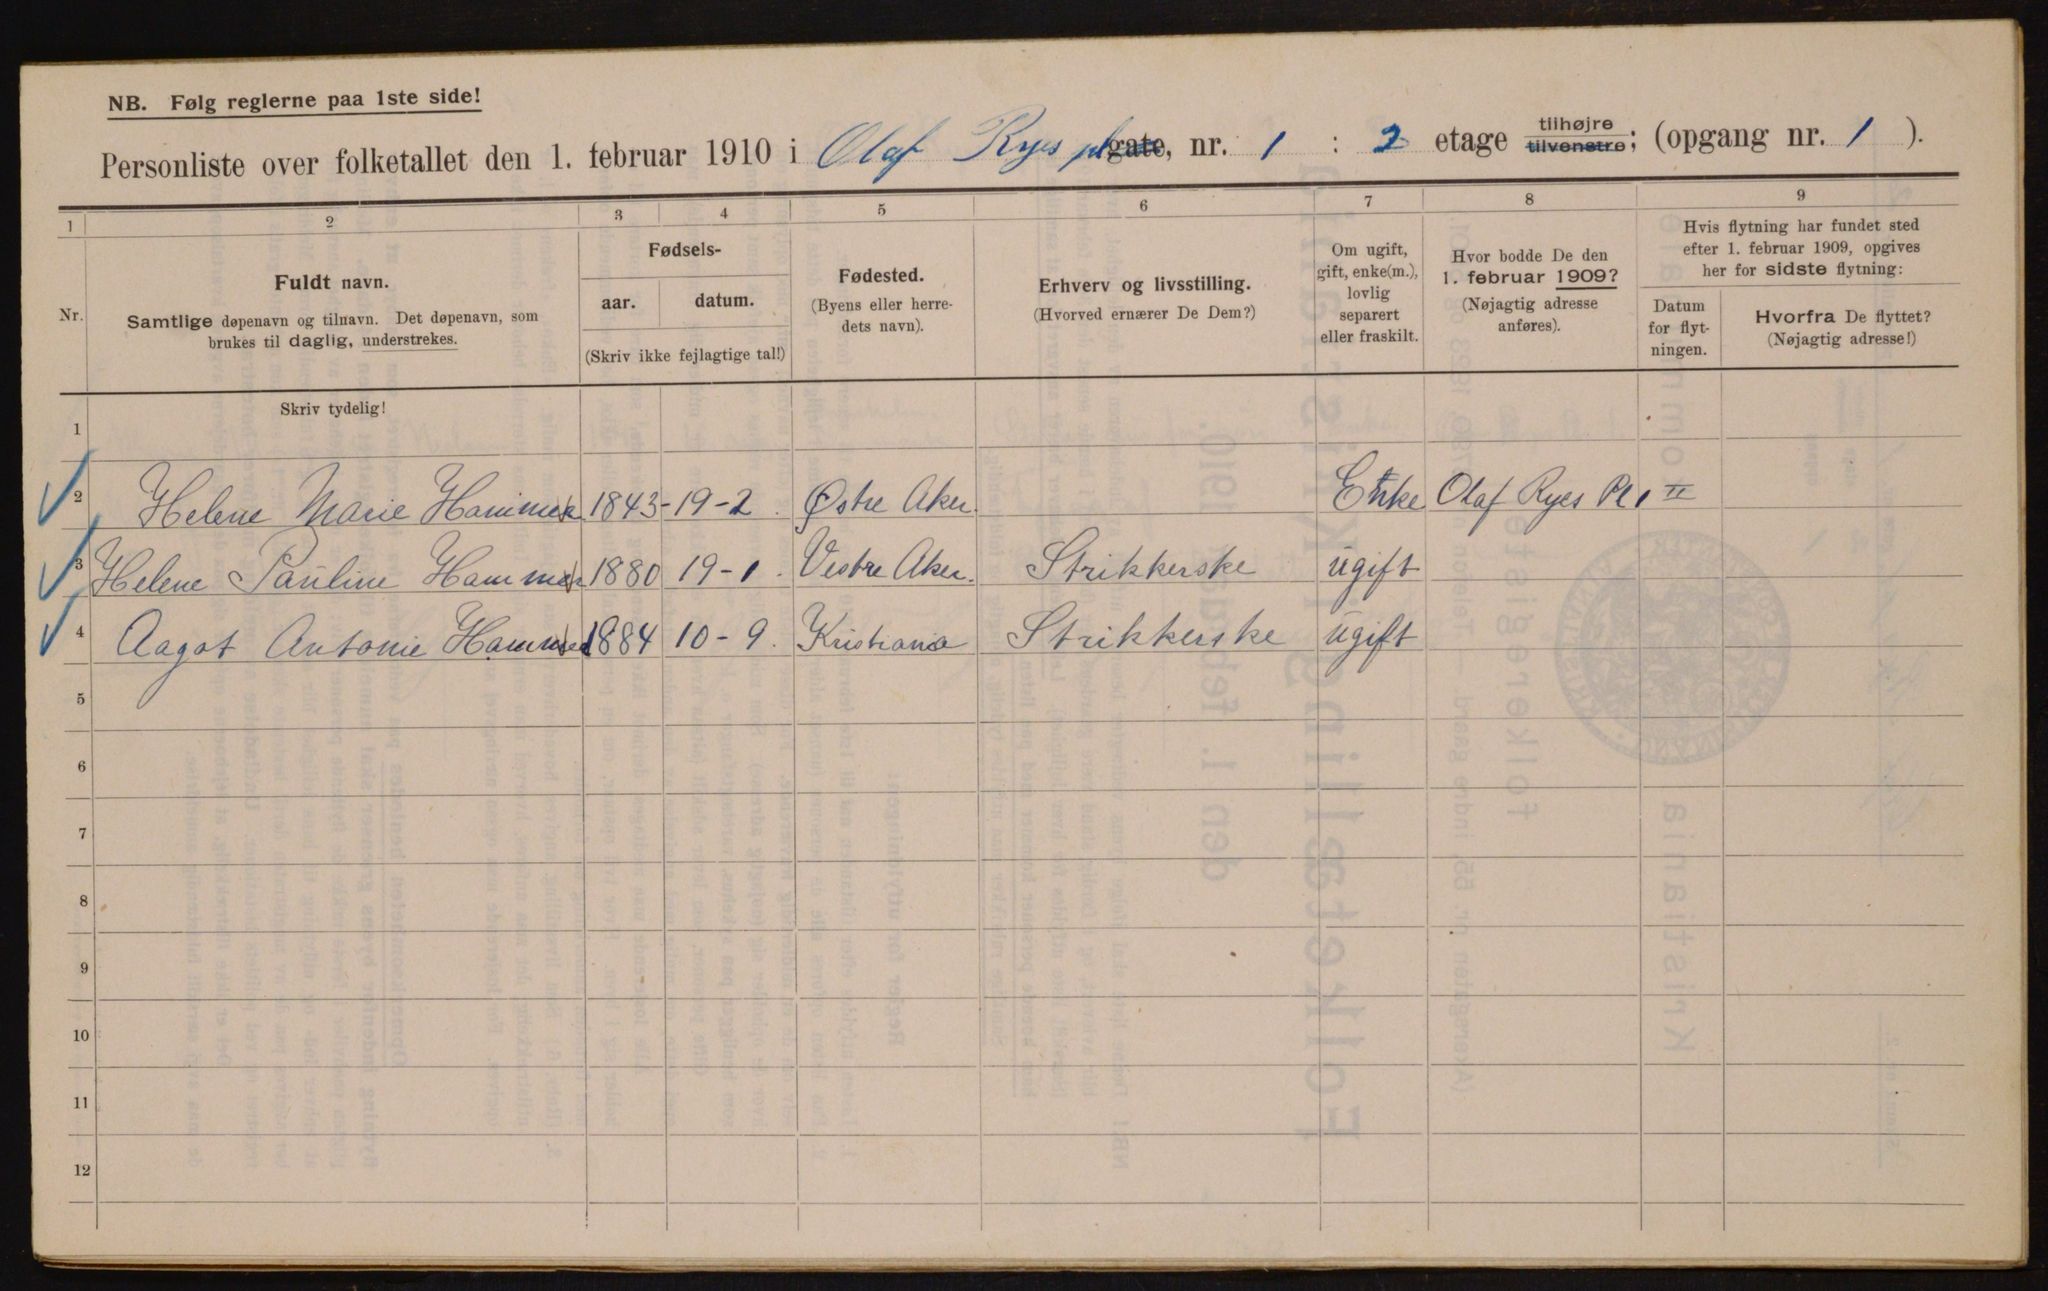 NB. Følg reglerne paa 1ste side!
Personliste over folketallet den 1. februar 1910 i Olaf Ryes pl gate, nr. 1 : 2 etage tilhøjre tilvenstre; (opgang nr. 1 ).
1 2 3 4 5 6 7 8 9
Nr.
Fuldt navn.
Samtlige døpenavn og tilnavn. Det døpenavn, som
brukes til daglig, understrekes.
Fødsels-
aar. datum.
(Skriv ikke fejlagtige tal!)
Fødested.
(Byens eller herre-
dets navn).
Erhverv og livsstilling.
(Hvorved ernærer De Dem?)
Om ugift,
gift, enke(m.),
lovlig
separert
eller fraskilt.
Hvor bodde De den
1. februar 1909?
(Nøjagtig adresse
anføres).
Hvis flytning har fundet sted
efter 1. februar 1909, opgives
her for sidste flytning:
Datum
for flyt-
ningen.
Hvorfra De flyttet?
(Nøjagtig adresse!)
Skriv tydelig!
1
2 Helene Marie 1843 - 19-2. Østre Aker. Enke Olaf Ryes Pl 1 II
3 Helene Pauline 1880 19-1. Vestre Aker. Strikkerske ugift
4 Aagot Antonie 1884 10-9. Kristiania Strikkerske ugift
5
6
7
8
9
10
11
12